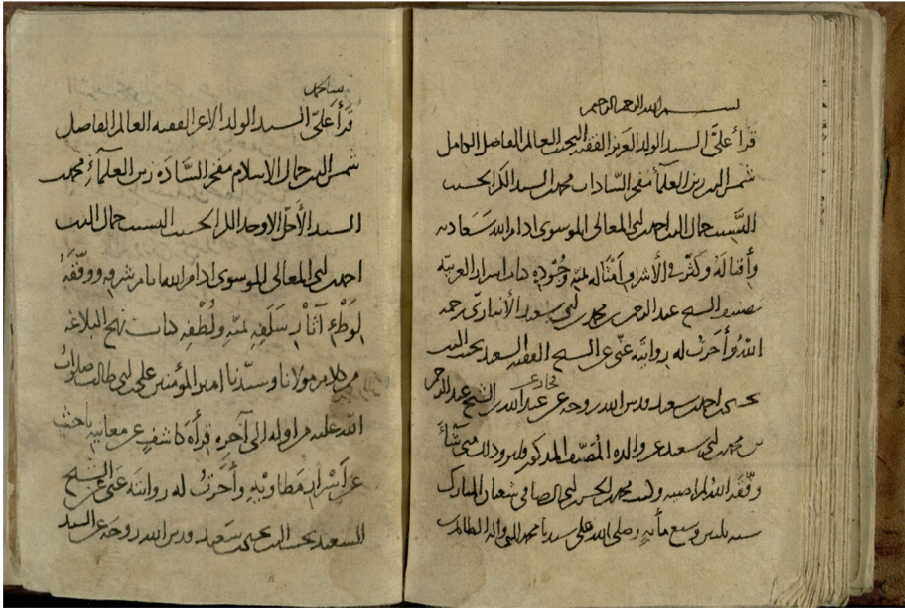 بسم الله الرحمن الرحيم
قرأ علىّ السيد الولد العزيز الفقيه النجيب العالم الفاضل الكامل
شمس الدين زين العلماء مفخر السادات محمد السيد الكبير الحسيب
النسيب جمال الدين احمد بن ابى المعالى الموسوى ادام الله سعادته
وأقباله وكثر فى الأشراف أمثاله بمنه وجوده كتاب اسرار العربية
تصنيف الشيخ عبد الرحمن بن محمد بن ابى سعيد الأنبارى رحمه
الله وأجزت له روايته عنى عن الشيخ الفقيه السعيد نجيب الدين
يحيى بن احمد بن سعيد قدس الله روحه عن عبد الله بن الشيخ عبد الرحمن
بن محمد بن ابى سعيد عن والده المصنف المذكور فليرو ذلك متى شاء
وفقه الله لمراضيه وكتب محمد بن الحسن بن ابى الرضا فى شعبان المبارك
سنة ثلثين وسبع مأية وصلى الله على سيدنا محمد النبى وآله الطاهرين
قرأ علىّ السيد الولد الاعز الفقيه العالم الفاضل
شمس الدين جمال الاسلام مفخر السادة زين العلماء محمد
السيد الأجل الاوحد الكبير الحسيب النسيب جمال الدين
احمد بن ابى المعالى الموسوى ادام الله ايام شرفه ووفقه
لوطء آثار سلفه بمنه ولطفه كتاب نهج البلاغة
من كلام مولانا وسيدنا امير المؤمنين على بن ابى طالب صلوات
الله عليه من اوله الى آخره قراءة كاشف عن معانيه باحث
عن أسرار مطاويه وأجزت له روايته عنى عن الشيخ
السعيد نجيب الدين يحيى بن سعيد قدس الله روحه عن السيد